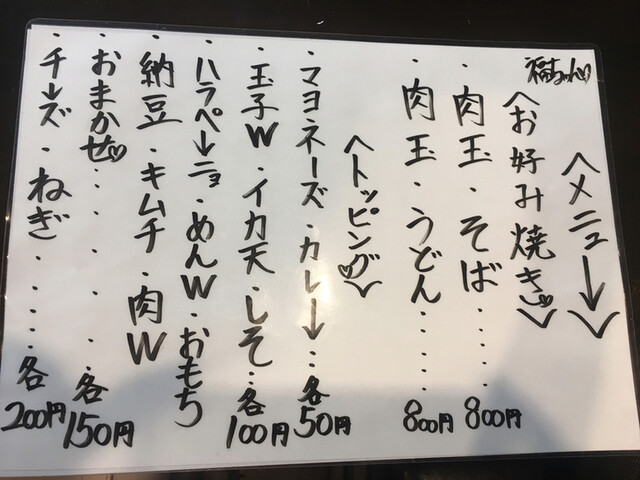 福ちゃん♡
〈メニュー↓〉
〈お好み焼き♡〉
・肉玉・そば・・・・・800円
・肉玉・うどん・・・・・800円
〈トッピング♡〉
・マヨネーズ・カレー・・・各50円
・玉子W・イカ天・しそ・・・各100円
・ハラペーニョ・めんW・おもち
・納豆・キムチ・肉W
・おまかせ♡・・・・・各150円
・チーズ・ねぎ・・・・・各200円